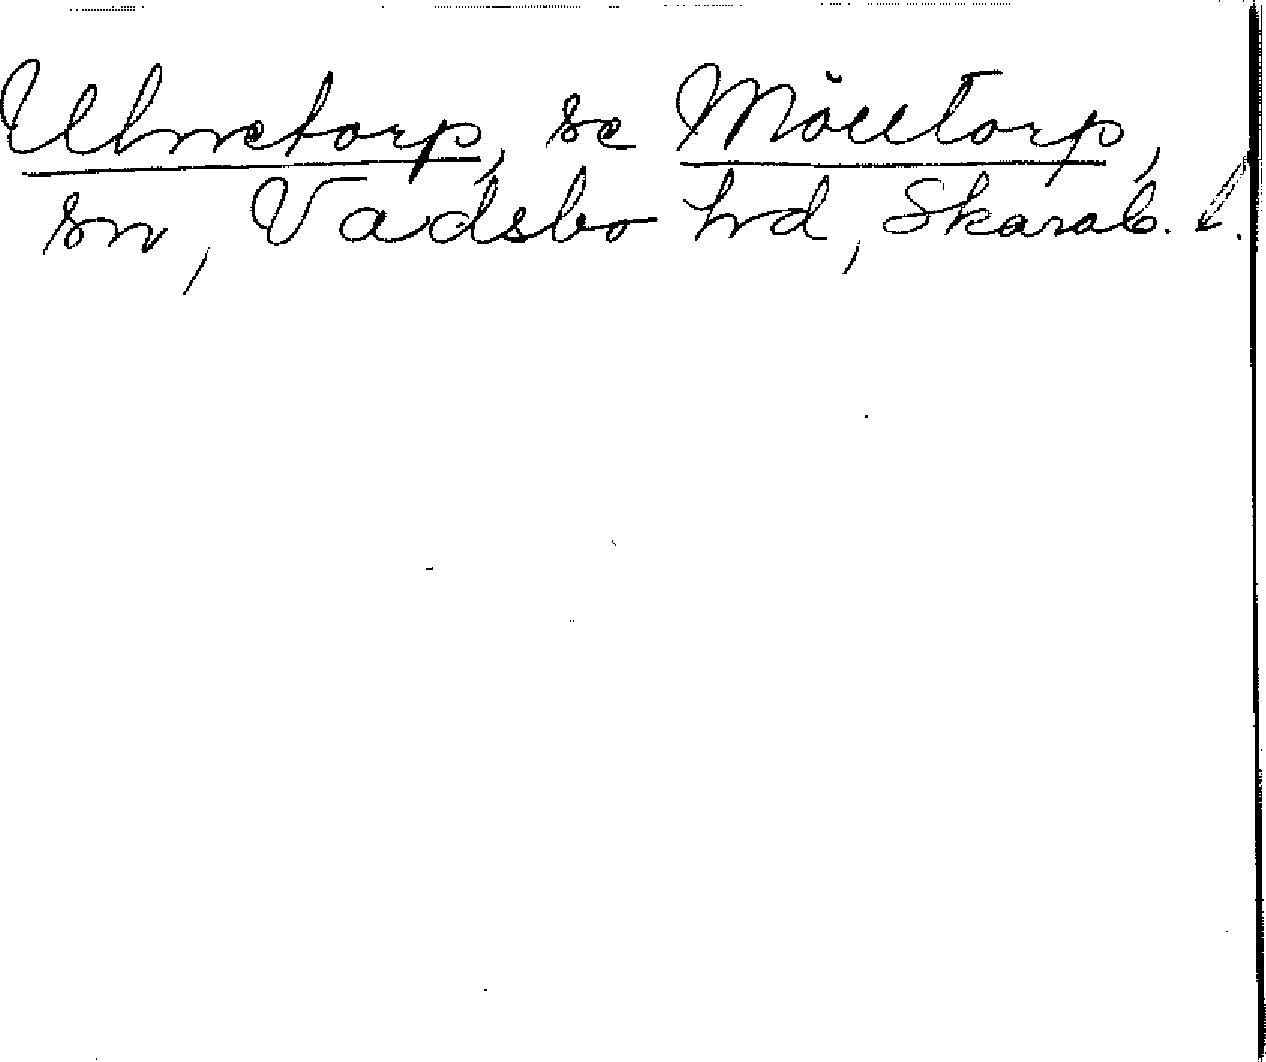 Ulmetorp, se Mölltorp,
sn, Vadsbo hrd, Skarab. l.